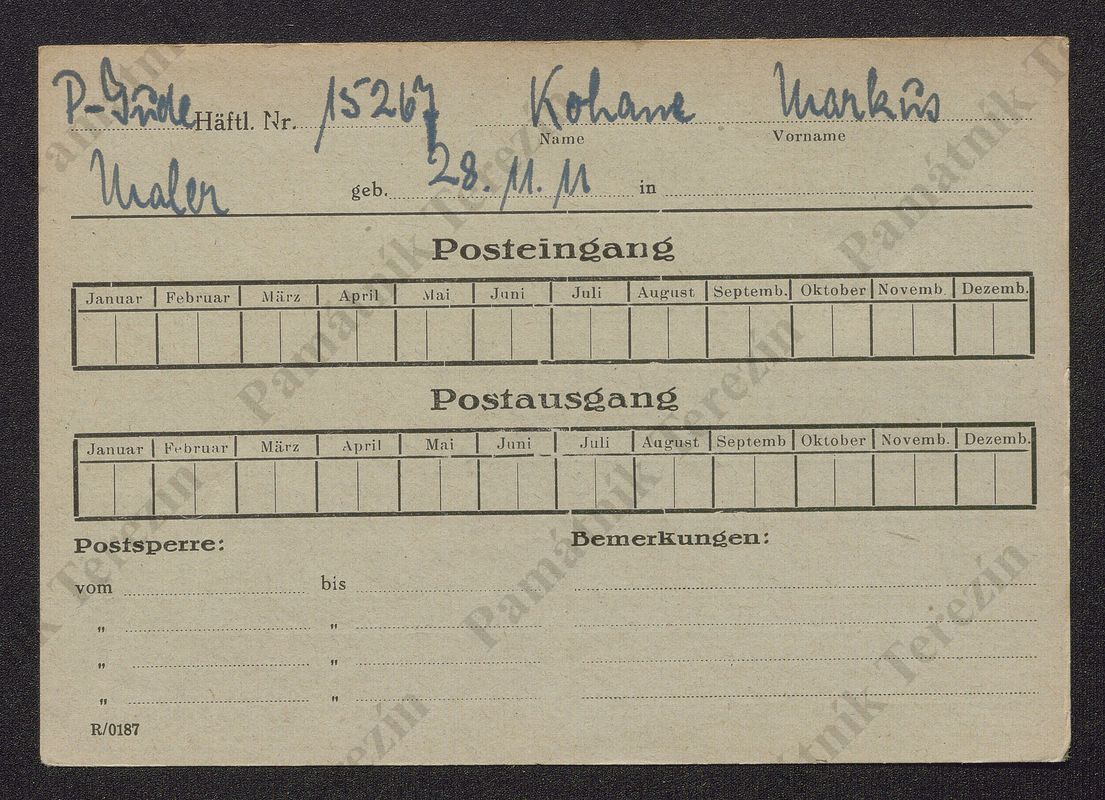 P-Jude Häftl. Nr. 15267 Kohane Markus
Name Vorname
Maler geb. 28. 11. 11 in
Posteingang
Januar Februar März April Mai Juni Juli August Septemb. Oktober Novemb. Dezemb.
Postausgang
Januar Februar März April Mai Juni Juli August Septemb Oktober Novemb. Dezemb.
Postsperre: Bemerkungen:
vom bis
" "
" "
" "
R/0187
Památník Terezín